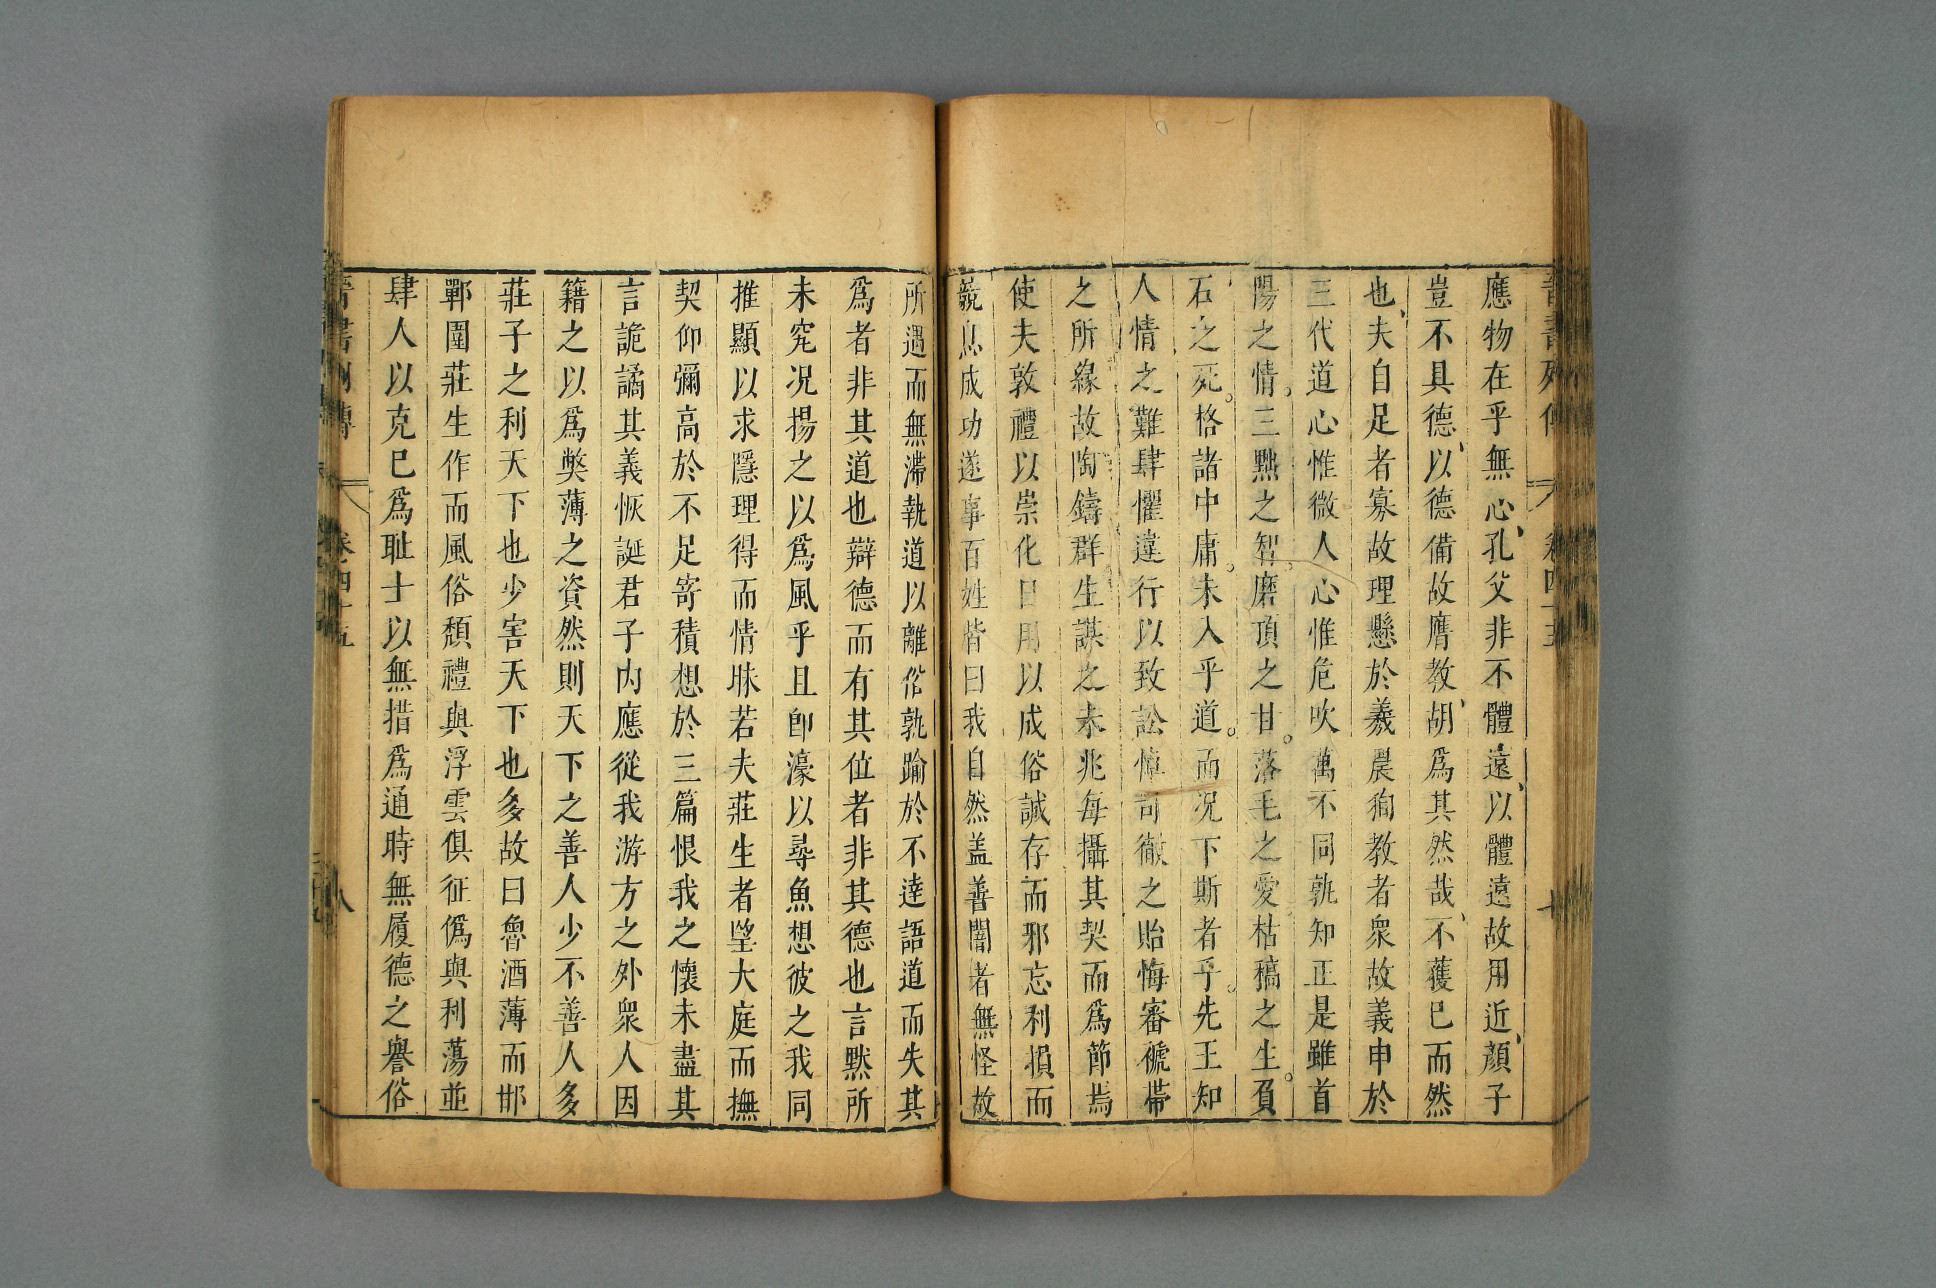 晉書列傳 卷四十五
應物在乎無心孔父非不體遠以體遠故用近顏子
豈不具德以德備故膺教胡爲其然哉不獲已而然
也夫自足者寡故理懸於羲農徇教者衆故義申於
三代道心惟微人心惟危吹萬不同孰知正是雖首
陽之情三黜之智磨頂之甘落毛之愛枯槁之生負
石之死格諸中庸未入乎道而况下斯者乎先王知
人情之難肆懼違行以致訟悼司徹之貽悔審褫帶
之所緣故陶鑄群生謀之未兆每攝其契而爲節焉
使夫敦禮以崇化日用以成俗誠存而邪忘利損而
競息成功遂事百姓皆曰我自然盖善闇者無怪故
所遇而無滯執道以離俗孰踰於不達語道而失其
爲者非其道也辯德而有其位者非其德也言默所
未究况揚之以爲風乎且卽濠以尋魚想彼之我同
推顯以求隱理得而情昧若夫莊生者望大庭而撫
契仰彌高於不足寄積想於三篇恨我之懷未盡其
言詭譎其義恢誕君子内應從我游方之外衆人因
籍之以爲獘薄之資然則天下之善人少不善人多
莊子之利天下也少害天下也多故曰魯酒薄而邯
鄲圍莊生作而風俗頹禮與浮雲俱征僞與利蕩並
肆人以克巳爲耻士以無措爲通時無履德之譽俗
晉書列傳 卷四十五 八